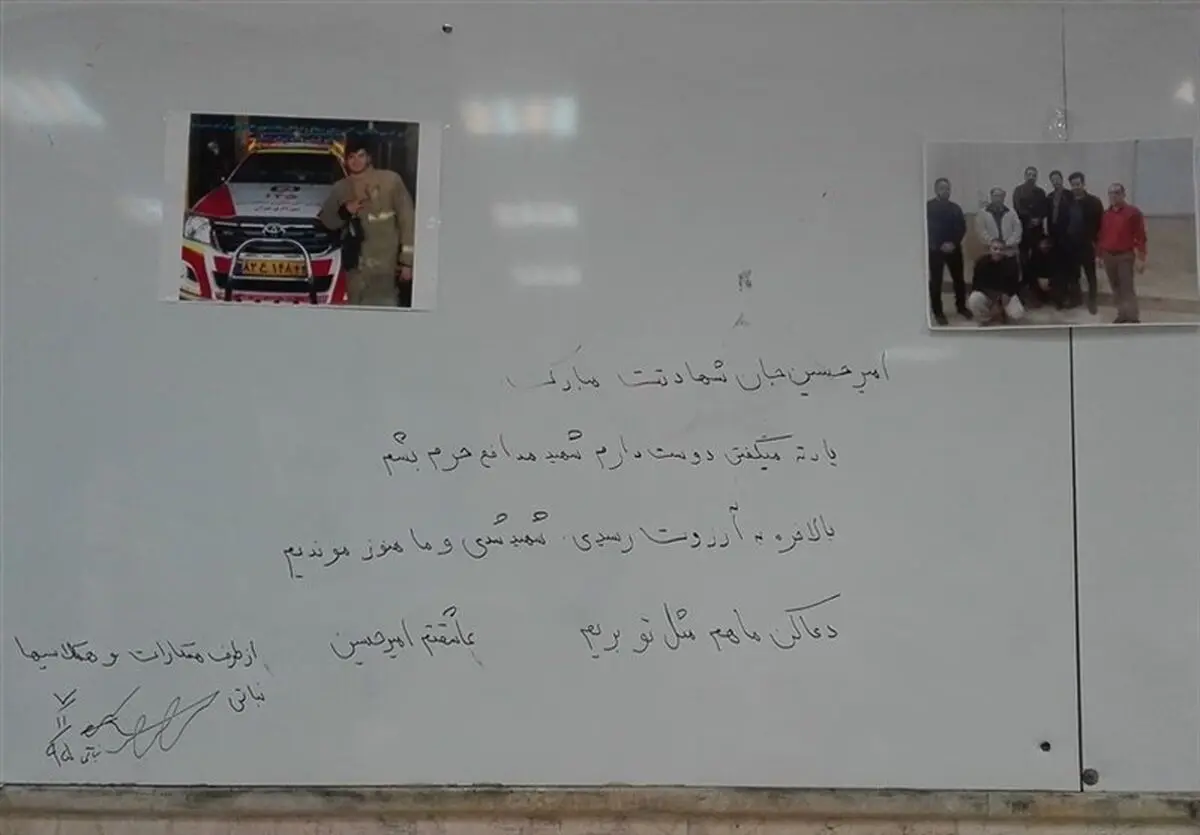 ۱۱۵
۸۲ ع ۱۴۸
امیرحسین جان شهادتت مبارک
یادته میگفتی دوست دارم شهید مدافع حرم بشم
بالاخره به آرزوت رسیدی. شهید شدی و ما هنوز موندیم
دعا کن ما هم مثل تو بریم
عاشقتم امیرحسین
از طرف همکارات و همکلاسیها
نباتی
نباتی
۹۵/۱۱/۷